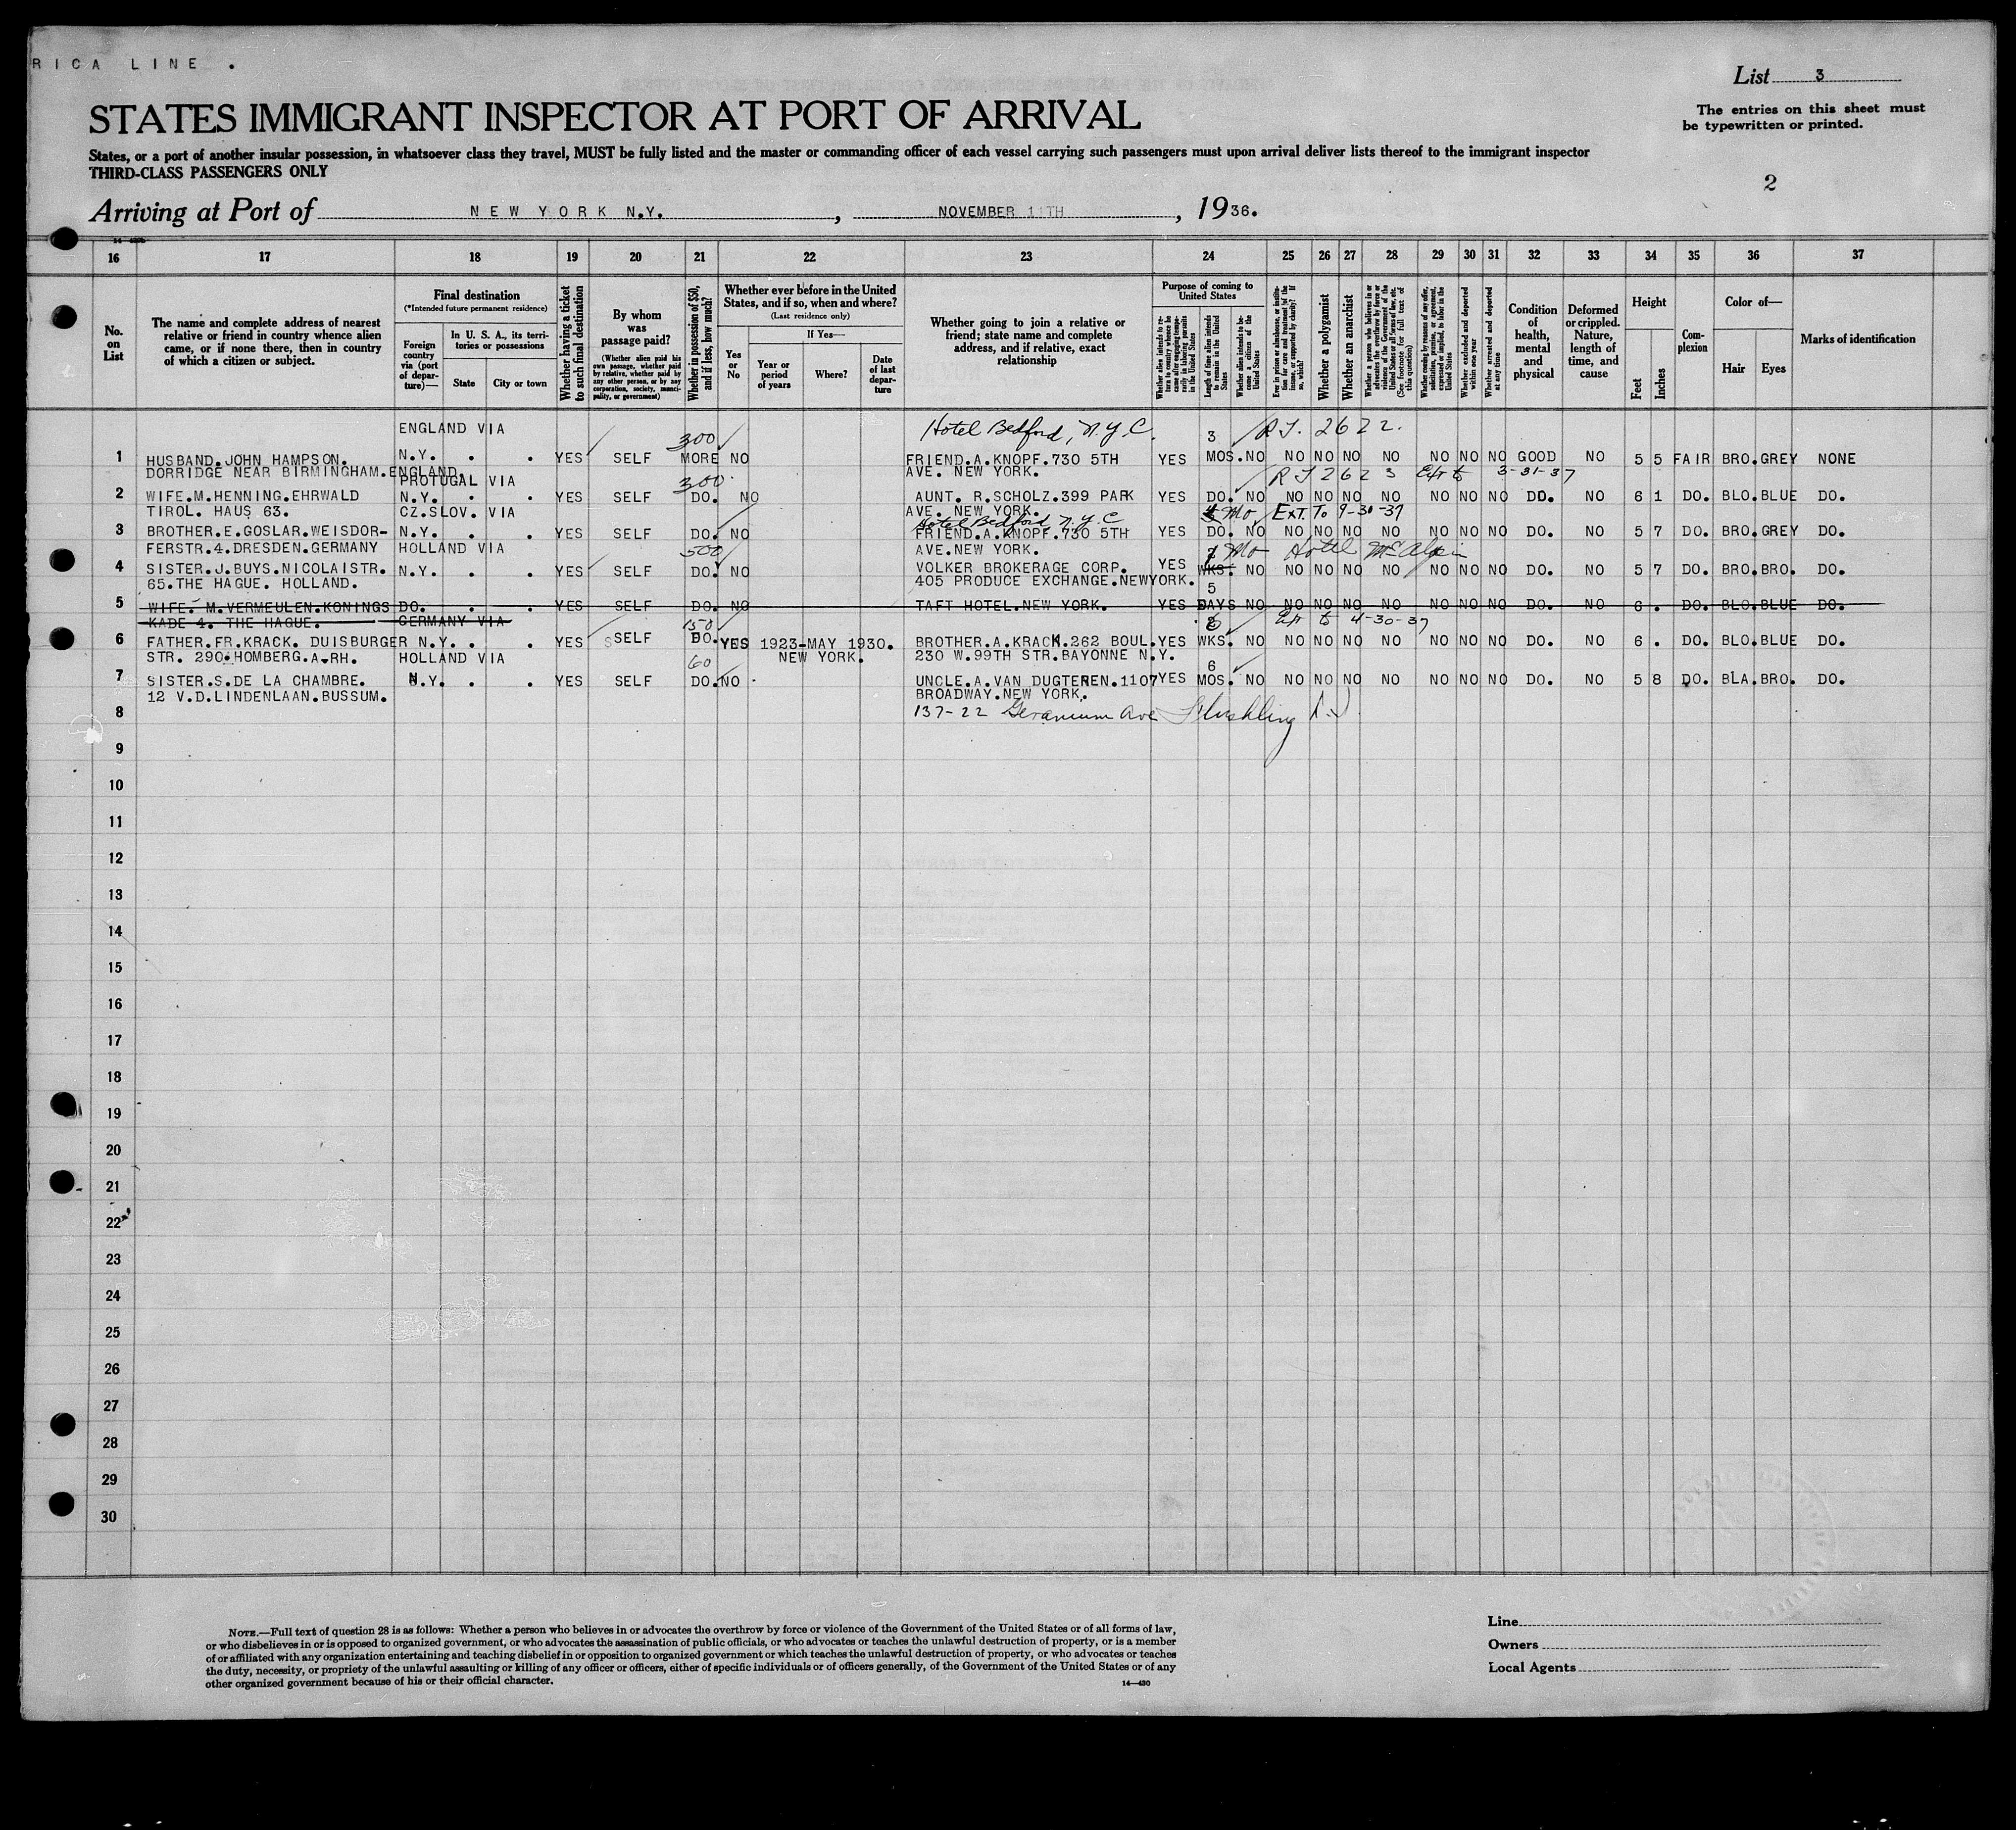 RICA LINE .
List 3
The entries on this sheet must
be typewritten or printed.
STATES IMMIGRANT INSPECTOR AT PORT OF ARRIVAL
States, or a port of another insular possession, in whatsoever class they travel, MUST be fully listed and the master or commanding officer of each vessel carrying such passengers must upon arrival deliver lists thereof to the immigrant inspector
THIRD-CLASS PASSENGERS ONLY
2
Arriving at Port of NEW YORK N.Y. , NOVEMBER 11TH , 1936.
16 17 18 19 20 21 22 23 24 25 26 27 28 29 30 31 32 33 34 35 36 37
No. on List
The name and complete address of nearest relative or friend in country whence alien came, or if none there, then in country of which a citizen or subject.
Final destination
(*Intended future permanent residence)
Foreign country via (port of departure)—
In U. S. A., its territories or possessions
State
City or town
Whether having a ticket to such final destination
By whom was passage paid?
(Whether alien paid his own passage, whether paid by relative, whether paid by any other person, or by any corporation, society, municipality, or government)
Whether in possession of $50, and if less, how much?
Whether ever before in the United States, and if so, when and where?
(Last residence only)
Yes or No
If Yes—
Year or period of years
Where?
Date of last departure
Whether going to join a relative or friend; state name and complete address, and if relative, exact relationship
Purpose of coming to United States
Whether alien intends to return to country whence he came after engaging temporarily in laboring pursuits in the United States
Length of time alien intends to remain in the United States
Whether alien intends to become a citizen of the United States
Ever in prison or almshouse, or institution for care and treatment of the insane, or supported by charity? If so, which?
Whether a polygamist
Whether an anarchist
Whether a person who believes in or advocates the overthrow by force or violence of the Government of the United States or all forms of law, etc. (See footnote for full text of this question)
Whether coming by reasons of any offer, solicitation, promise, or agreement, expressed or implied, to labor in the United States
Whether excluded and deported within one year
Whether arrested and deported at any time
Condition of health, mental and physical
Deformed or crippled. Nature, length of time, and cause
Height
Feet
Inches
Complexion
Color of—
Hair Eyes
Marks of identification
ENGLAND VIA 300 Hotel Bedford, N.Y.C. 3 RJ. 2622.
1 HUSBAND.JOHN HAMPSON. N.Y. . . YES SELF MORE NO FRIEND.A.KNOPF.730 5TH YES MOS. NO NO NO NO NO NO NO NO GOOD NO 5 5 FAIR BRO. GREY NONE
DORRIDGE NEAR BIRMINGHAM.ENGLAND. AVE. NEW YORK. RJ 2623 Ext to 3-31-37
PROTUGAL VIA 300
2 WIFE.M.HENNING.EHRWALD N.Y. . . YES SELF DO. NO AUNT. R.SCHOLZ.399 PARK YES DO. NO NO NO NO NO NO NO NO DO. NO 6 1 DO. BLO. BLUE DO.
TIROL. HAUS 63. CZ.SLOV. VIA AVE. NEW YORK. Mo Ext. To 9-30-37
Hotel Bedford N.Y.C
3 BROTHER.E.GOSLAR.WEISDOR- N.Y. . . YES SELF DO. NO FRIEND.A.KNOPF.730 5TH YES DO. NO NO NO NO NO NO NO NO DO. NO 5 7 DO. BRO. GREY DO.
FERSTR.4.DRESDEN.GERMANY HOLLAND VIA 500 AVE.NEW YORK. Mo Hotel McAlpin
4 SISTER.J.BUYS.NICOLAISTR. N.Y. . . YES SELF DO. NO VOLKER BROKERAGE CORP. YES WKS. NO NO NO NO NO NO NO NO DO. NO 5 7 DO. BRO. BRO. DO.
65.THE HAGUE. HOLLAND. 405 PRODUCE EXCHANGE.NEWYORK.
5
5 WIFE. M.VERMEULEN.KONINGS DO. . . YES SELF DO. NO TAFT HOTEL.NEW YORK. YES DAYS NO NO NO NO NO NO NO NO DO. NO 6 . DO. BLO. BLUE DO.
KADE 4. THE HAGUE. GERMANY VIA 150 Ext to 4-30-37
6 FATHER.FR.KRACK. DUISBURGER N.Y. . . YES SELF DO. YES 1923-MAY 1930. BROTHER.A.KRACK.262 BOUL. YES WKS. NO NO NO NO NO NO NO NO DO. NO 6 . DO. BLO. BLUE DO.
STR. 290.HOMBERG.A.RH. HOLLAND VIA 60 NEW YORK. 230 W.99TH STR.BAYONNE N.Y.
6
7 SISTER.S.DE LA CHAMBRE. N.Y. . . YES SELF DO. NO UNCLE.A.VAN DUGTEREN.1107 YES MOS. NO NO NO NO NO NO NO NO DO. NO 5 8 DO. BLA. BRO. DO.
12 V.D.LINDENLAAN.BUSSUM. BROADWAY.NEW YORK.
8 137-22 Geranium Ave Flushling
9
10
11
12
13
14
15
16
17
18
19
20
21
22
23
24
25
26
27
28
29
30
NOTE.—Full text of question 28 is as follows: Whether a person who believes in or advocates the overthrow by force or violence of the Government of the United States or of all forms of law,
or who disbelieves in or is opposed to organized government, or who advocates the assassination of public officials, or who advocates or teaches the unlawful destruction of property, or is a member
of or affiliated with any organization entertaining and teaching disbelief in or opposition to organized government or which teaches the unlawful destruction of property, or who advocates or teaches
the duty, necessity, or propriety of the unlawful assaulting or killing of any officer or officers, either of specific individuals or of officers generally, of the Government of the United States or of any
other organized government because of his or their official character.
14—430
Line
Owners
Local Agents